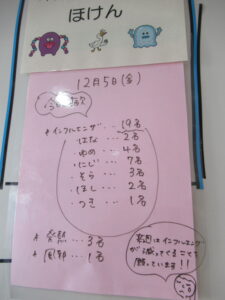 ほけん
12月5日(金)
今日のお休み
* インフルエンザ … 19名
はな … 2名
ゆめ … 4名
にじ … 7名
そら … 3名
ほし … 2名
つき … 1名
* 発熱 … 3名
* 風邪 … 1名
来週はインフルエンザ
が減ってることを
願っています!!